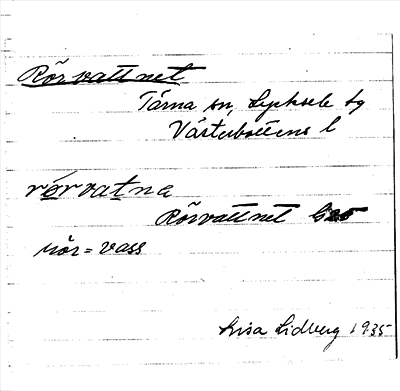 Rörvattnet
Tärna sn, Lycksele tg
Västerbottens l
rö́rvatnɐ
Rörvattnet G25
rör = vass
Lisa Lidberg 1935